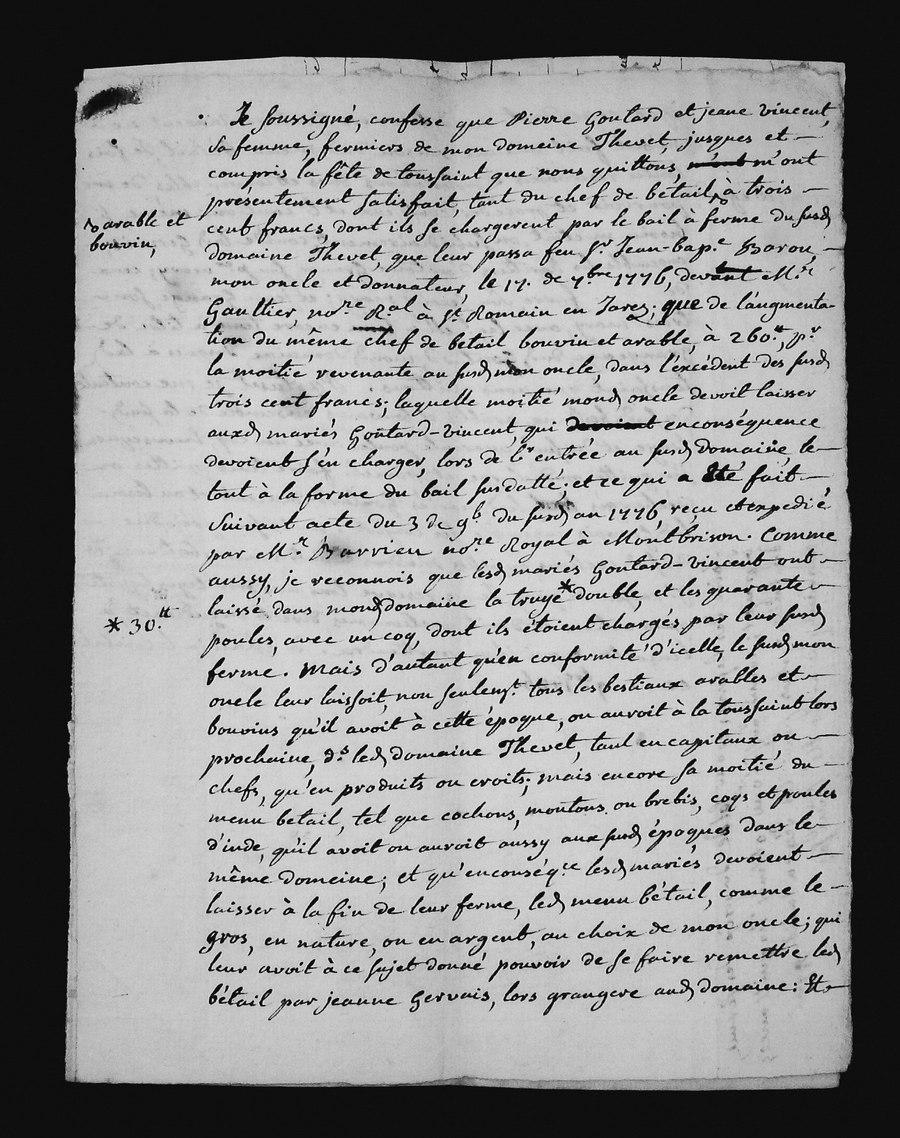 Je soussigné, confesse que Pierre Goutard et jeane vincent,
sa femme, fermiers de mon domeine Thevet, jusques et
compris la fête de toussaint que nous quittons, m'ont m'ont
présentement satisfait, tant du chef de bétail, à trois
arable et
bouvin,
cent francs, dont ils se chargerent par le bail à ferme du susd
domaine Thevet, que leur passa feu Sr Jean-bap.e Barou,
mon oncle et donnateur, le 17. de 7bre 1776, devant Mr
Gaultier, nore Ral à St Romain en Jarez; que de l'augmenta-
tion du même chef de bétail bouvin et arable, à 260.tt, pr
la moitié revenante au susd mon oncle, dans l'excédent des susd
trois cent francs; laquelle moitié mond oncle devoit laisser
auxd mariés Goutard-vincent, qui devoient enconséquence
devoient s'en charger, lors de lr entrée au susd domaine le
tout à la forme du bail susdatté; et ce qui a été fait
suivant acte du 3 de 9b. du susd an 1776, reçu et expedié
par Mr Barrieu nore Royal à Montbrison. Comme
aussy, je reconnois que lesd mariés Goutard-vincent ont
laissé dans mond domaine la truye * double, et les quarante
* 30.tt
poules, avec un coq, dont ils étoient chargés par leur susd
ferme. Mais d'autant qu'en conformité d'icelle, le susd mon
oncle leur laissoit, non seulemt. tous les bestiaux arables et
bouvins qu'il avoit à cette époque, ou auroit à la toussaint lors
prochaine, ds led domaine Thevet, tant en capitaux ou
chefs, qu'en produits ou croits; mais encore sa moitié du
menu betail, tel que cochons, moutons ou brebis, coqs et poules
d'inde, qu'il avoit ou auroit aussy aux susd époques dans le
même domeine; et qu'enconséq.ce lesd mariés devoient
laisser à la fin de leur ferme, led menu bétail, comme le
gros, en nature, ou en argent, au choix de mon oncle; qui
leur avoit à ce sujet donné pouvoir de se faire remettre led
bétail par jeanne Gervais, lors grangere aud domaine: Et